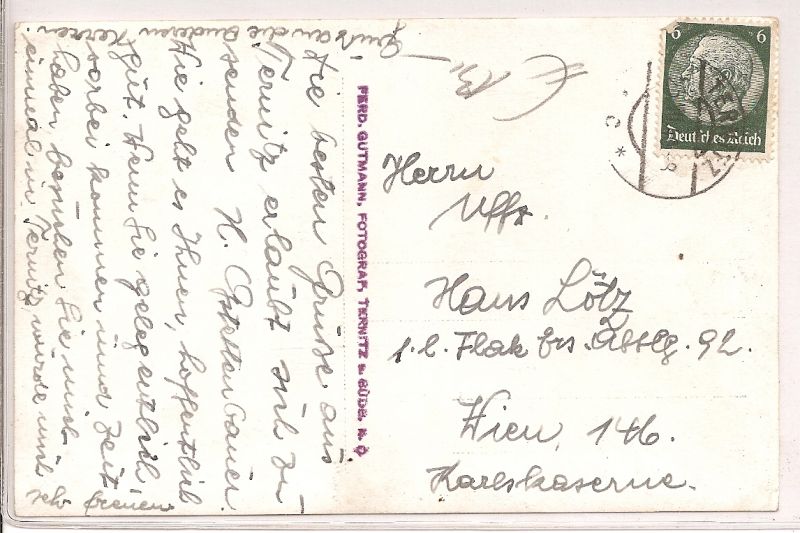 Die besten Grüße aus
Ternitz erlaubt sich zu
senden H. Gstettenbauer.
Wie geht es Ihnen, hoffentlich
gut. Wenn Sie gelegentlich
vorbei kommen und Zeit
haben besuchen Sie mich
einmal in Ternitz, würde mich
sehr freuen
Gruß an die anderen Herren.
FERD. GUTMANN, FOTOGRAF, TERNITZ a. SÜDB. N. Ö
6 6
Deutsches Reich
Herrn
Uffz.
Hans Lötz
s. l. Flak Ers. Abtlg. 92.
Wien, 146.
Karlskaserne.